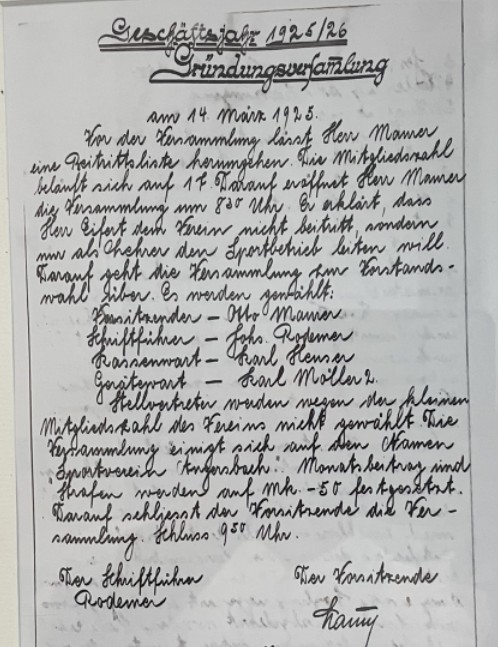 Geschäftsjahr 1925/26
Gründungsversam̄lung
am 14. März 1925.
Vor der Versammlung lässt Herr Maurer
eine Beitrittsliste herumgehen. Die Mitgliedszahl
beläuft sich auf 17. Darauf eröffnet Herr Maurer
die Versammlung um 830 Uhr. Er erklärt, dass
Herr Eifert dem Verein nicht beitritt, sondern
nur als Lehrer den Sportbetrieb leiten will.
Darauf geht die Versammlung zur Vorstands-
wahl über. Es werden gewählt:
Vorsitzender — Otto Maurer
Schriftführer — Johs. Rodemer
Kassenwart — Karl Heuser
Gerätewart — Karl Möller 2.
Stellvertreter werden wegen der kleinen
Mitgliedszahl des Vereins nicht gewählt. Die
Versammlung einigt sich auf den Namen
"Sportverein Angersbach". Monatsbeitrag und
Strafen werden auf Mk. -50 festgesetzt.
Darauf schliesst der Vorsitzende die Ver-
sammlung. Schluss 950 Uhr.
Der Schriftführer Der Vorsitzende
Rodemer